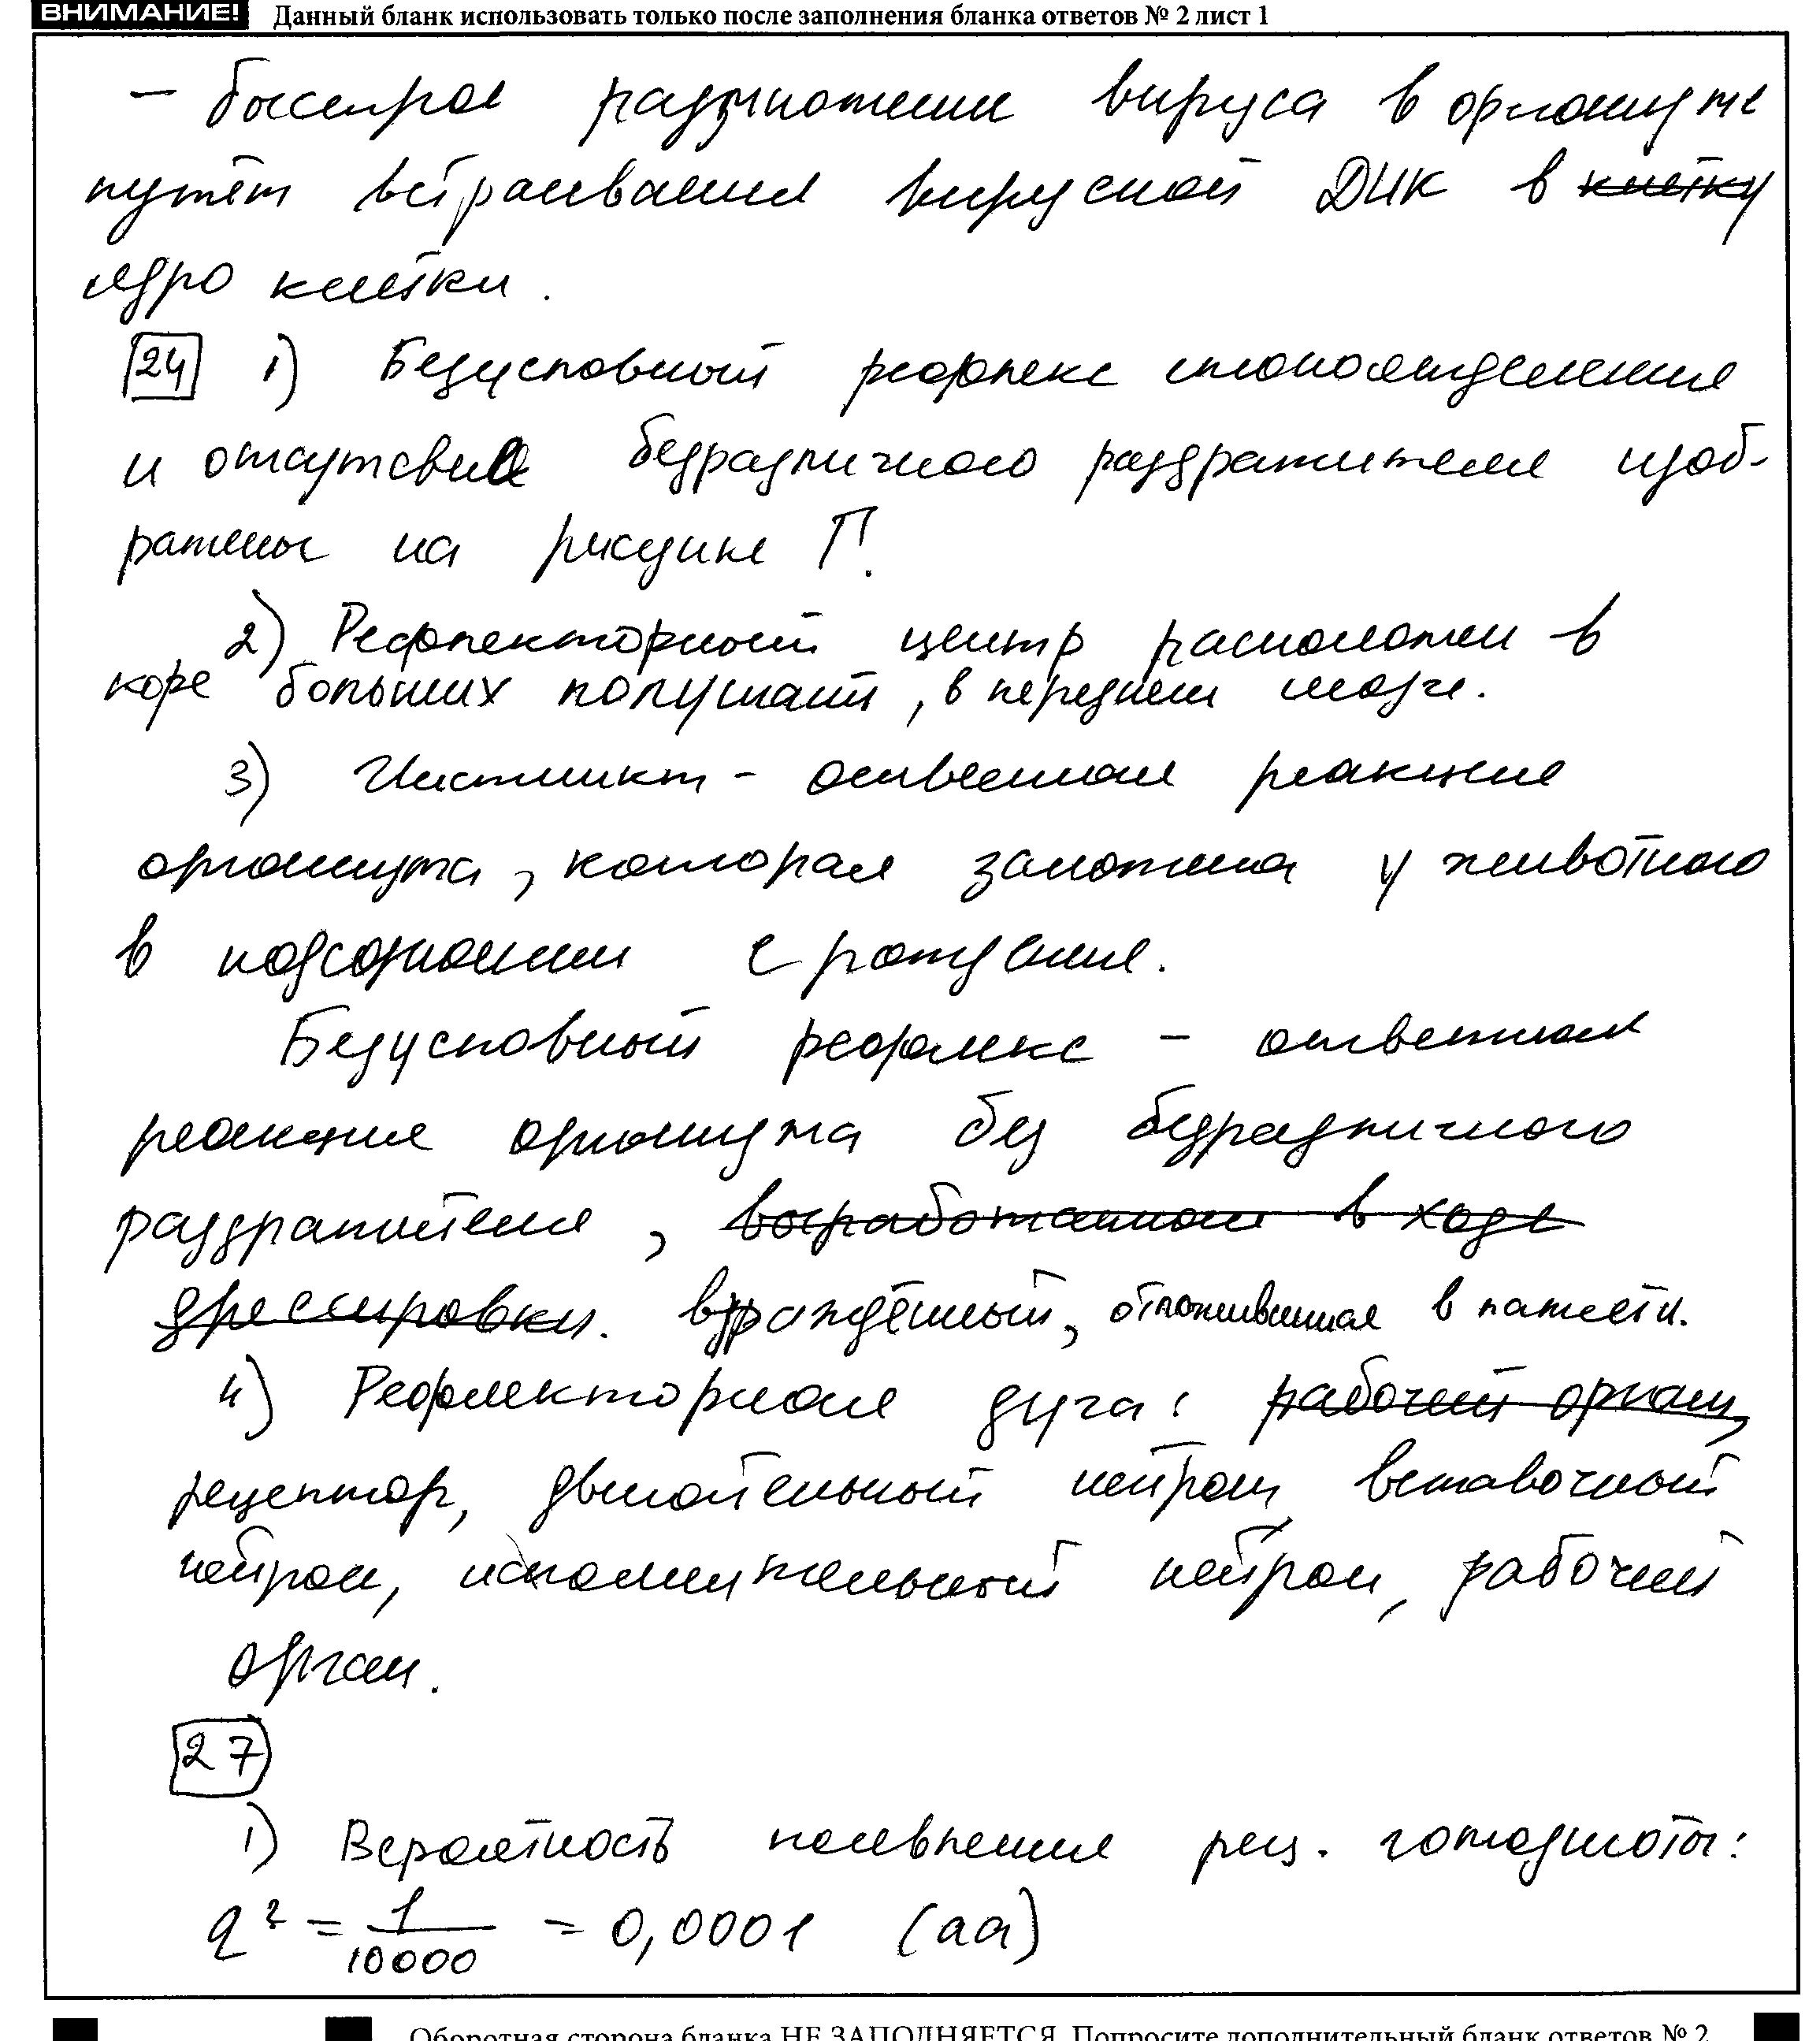 ВНИМАНИЕ! Данный бланк использовать только после заполнения бланка ответов № 2 лист 1
– быстрое размножение вируса в организме
путём встраивания вирусной ДНК в клетку
ядро клетки.
24 1) Безусловный рефлекс слюноотделения
и отсутсвие безразличного раздражителя изоб-
ражены на рисунке Г.
2) Рефлекторный центр расположен в
коре больших полушарий, в переднем мозге.
3) Инстинкт - ответная реакция
организма, которая заложена у животного
в подсознании с рождения.
Безусловный рефлекс – ответная
реакция организма без безразличного
раздражителя, выработанная в ходе
дрессировки. врождённый, отложившаяся в памяти.
4) Рефлекторная дуга: рабочий орган,
рецептор, двигательный нейрон, вставочный
нейрон, исполнительный нейрон, рабочий
орган.
27
1) Вероятность появления рец. гомозиготы:
q² = 1/10000 = 0,0001 (aa)
Оборотная сторона бланка НЕ ЗАПОЛНЯЕТСЯ. Попросите дополнительный бланк ответов № 2